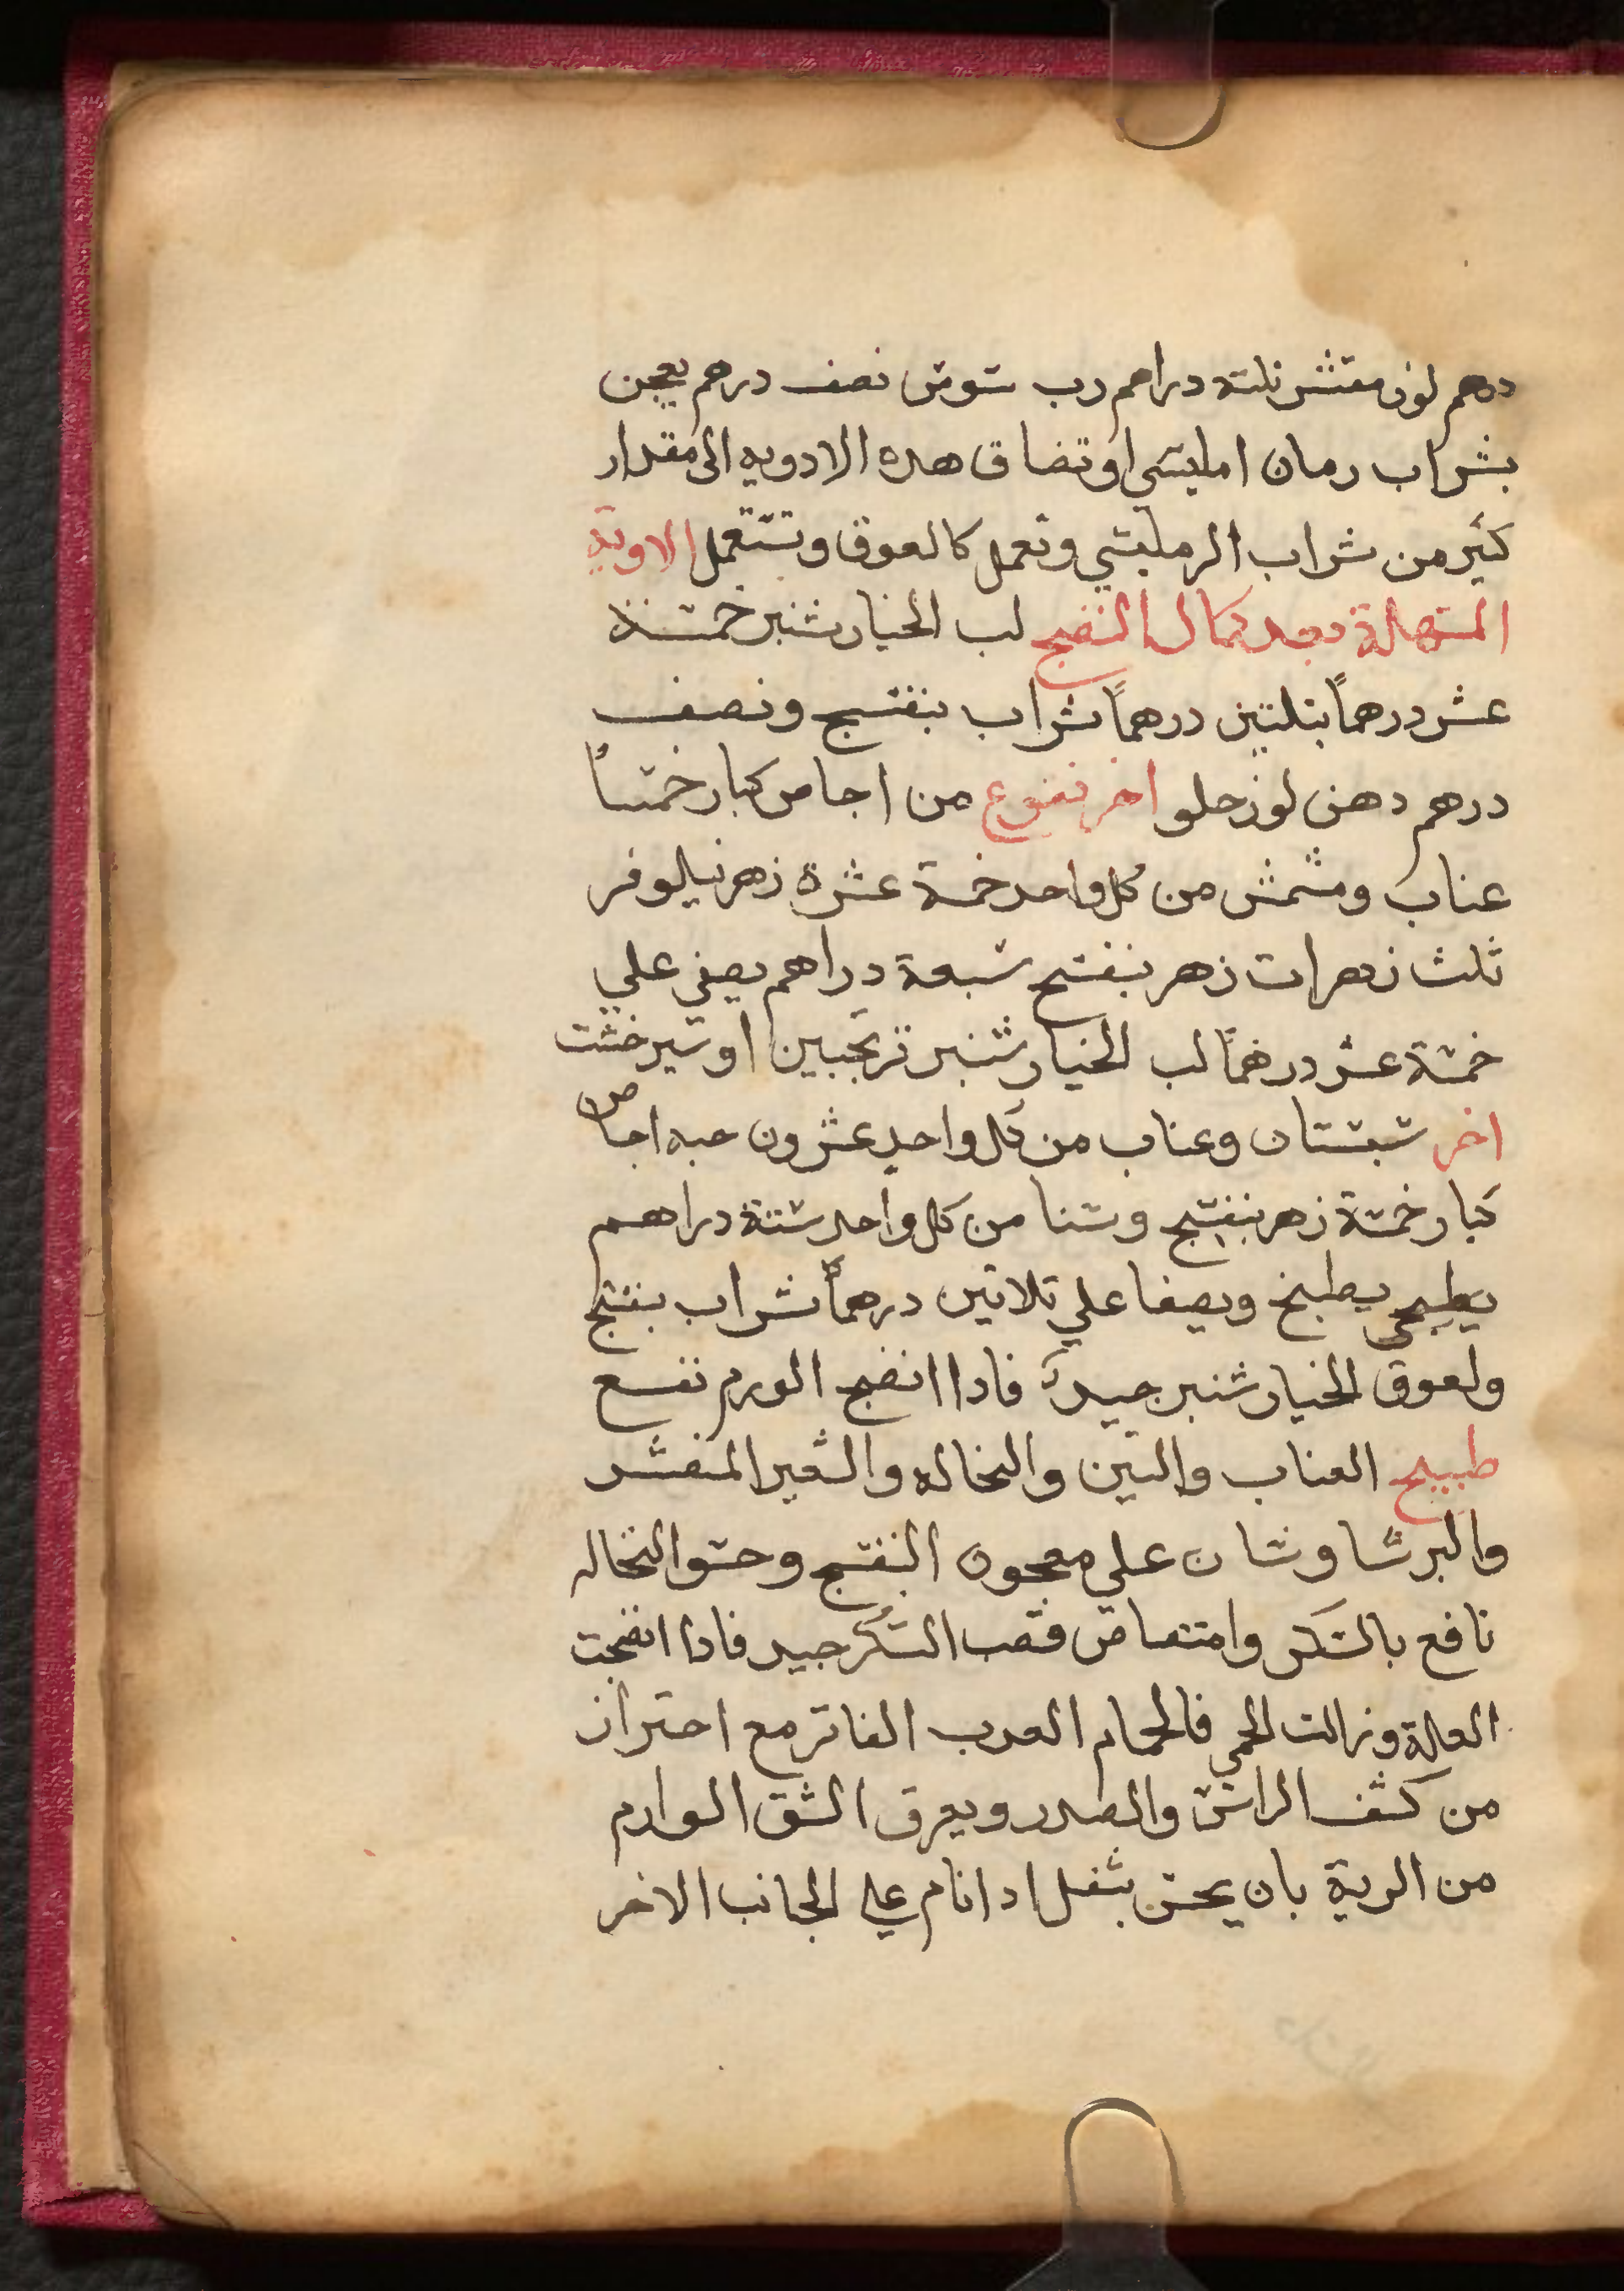 درهم لوز مقشر ثلثة دراهم رب سوس نصف درهم يعجن
بشراب رمان امليسي او تضاف هده الادويه الى مقدار
كثير من شراب الرمليسي وتعمل كالعوق وتستعمل الاوية
المسهلة بعد كمال النضج لب الخيار شنبر خمسة
عشر درهماً بتلتين درهماً شراب بنفسج ونصف
درهم دهن لوز حلو اخر نقوع من اجاص كبار خمساً
عناب ومشمش من كل واحد خمسة عشرة زهر نيلوفر
ثلث زهرات زهر بنفسج سبعة دراهم يصفي علي
خمسة عشر درهماً لب الخيار شنبر ترنجبين او شير خشت
اخر سبستان وعناب من كل واحدٍ عشرون حبه اجاص
كبار خمسة زهر بنفسج وسنا من كل واحد ستة دراهم
يطبخ ويصفا علي تلاتين درهماً شراب بنفسج
ولعوق الخيار شنبر جيد فادا انضج الورم نفع
طبيخ العناب والتين والنخاله والشعير المقشر
والبرشاوشان علي معجون البنفسج وحسو النخاله
نافع بالسكر وامتصاص قصب السكر جيد فادا انضجت
العلة وزالت الحمى فالحمام العدب الفاتر مع احتراز
من كشف الراس والصدر ويعرق الشق الوارم
من الرية بان يحس بثقل ادا نام علي الجانب الاخر